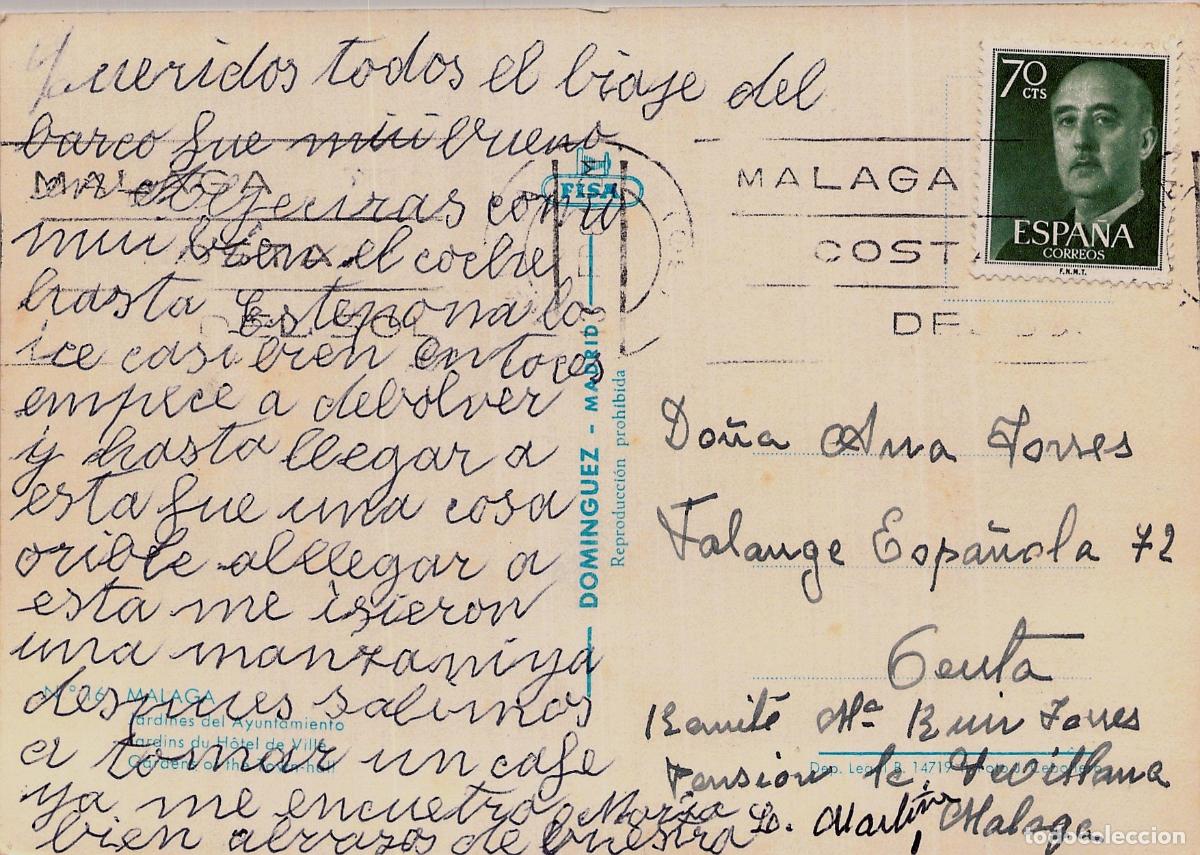 Queridos todos el biage del
barco fue mui bueno
en algeciras comi
mui bien el coche
hasta Estepona lo
ice casi bien entoces
empece a debolver
y hasta llegar a
esta fue una cosa
orible al llegar a
esta me isieron
una manzaniya
despues salimos
a tomar un cafe
ya me encuetro
bien abrazos de buestra
Maria
MALAGA
COSTA
DEL SOL
FISA
DOMINGUEZ - MADRID
Reproducción prohibida
Nº 16 MALAGA
Jardines del Ayuntamiento
Jardins du Hôtel de Ville
Gardens of the Town-hall
70 CTS
ESPAÑA
CORREOS
F.N.M.T.
MALAGA
COSTA
DEL
Doña Ana Torres
Falange Española 72
Ceuta
Remite Mª Ruiz Torres
Pension la Sevillana
Málaga
Dep. Legal B. 14719
todocoleccion